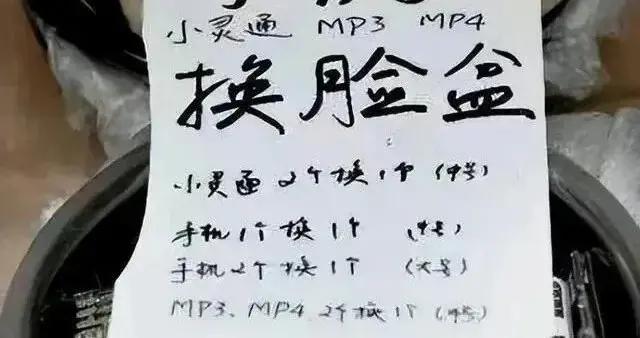 小灵通 MP3 MP4
换脸盆
小灵通2个换1个(中号)
手机1个换1个(中号)
手机2个换1个(大号)
MP3、MP4 2个换1个(中号)